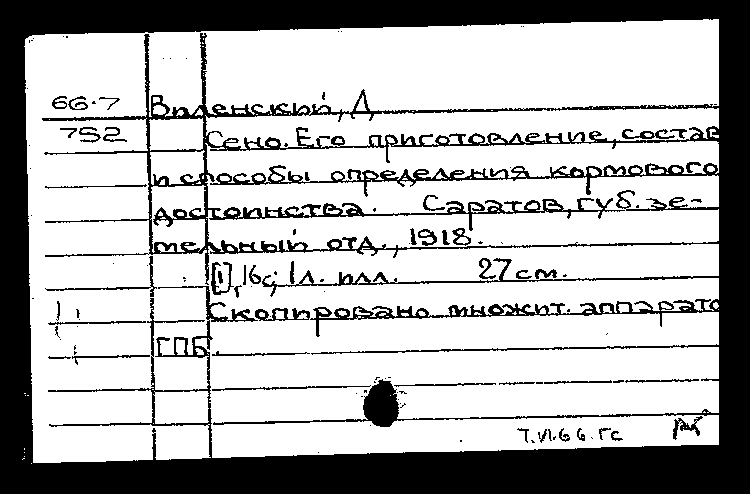 66.7 Виленский, Д.
752 Сено. Его приготовление, состав
и способы определения кормового
достоинства. Саратов, губ. зе-
мельный отд., 1918.
[1], 16с; 1 л. илл. 27 см.
Скопировано множит. аппарато
ГПБ.
7.VI.66. Гс